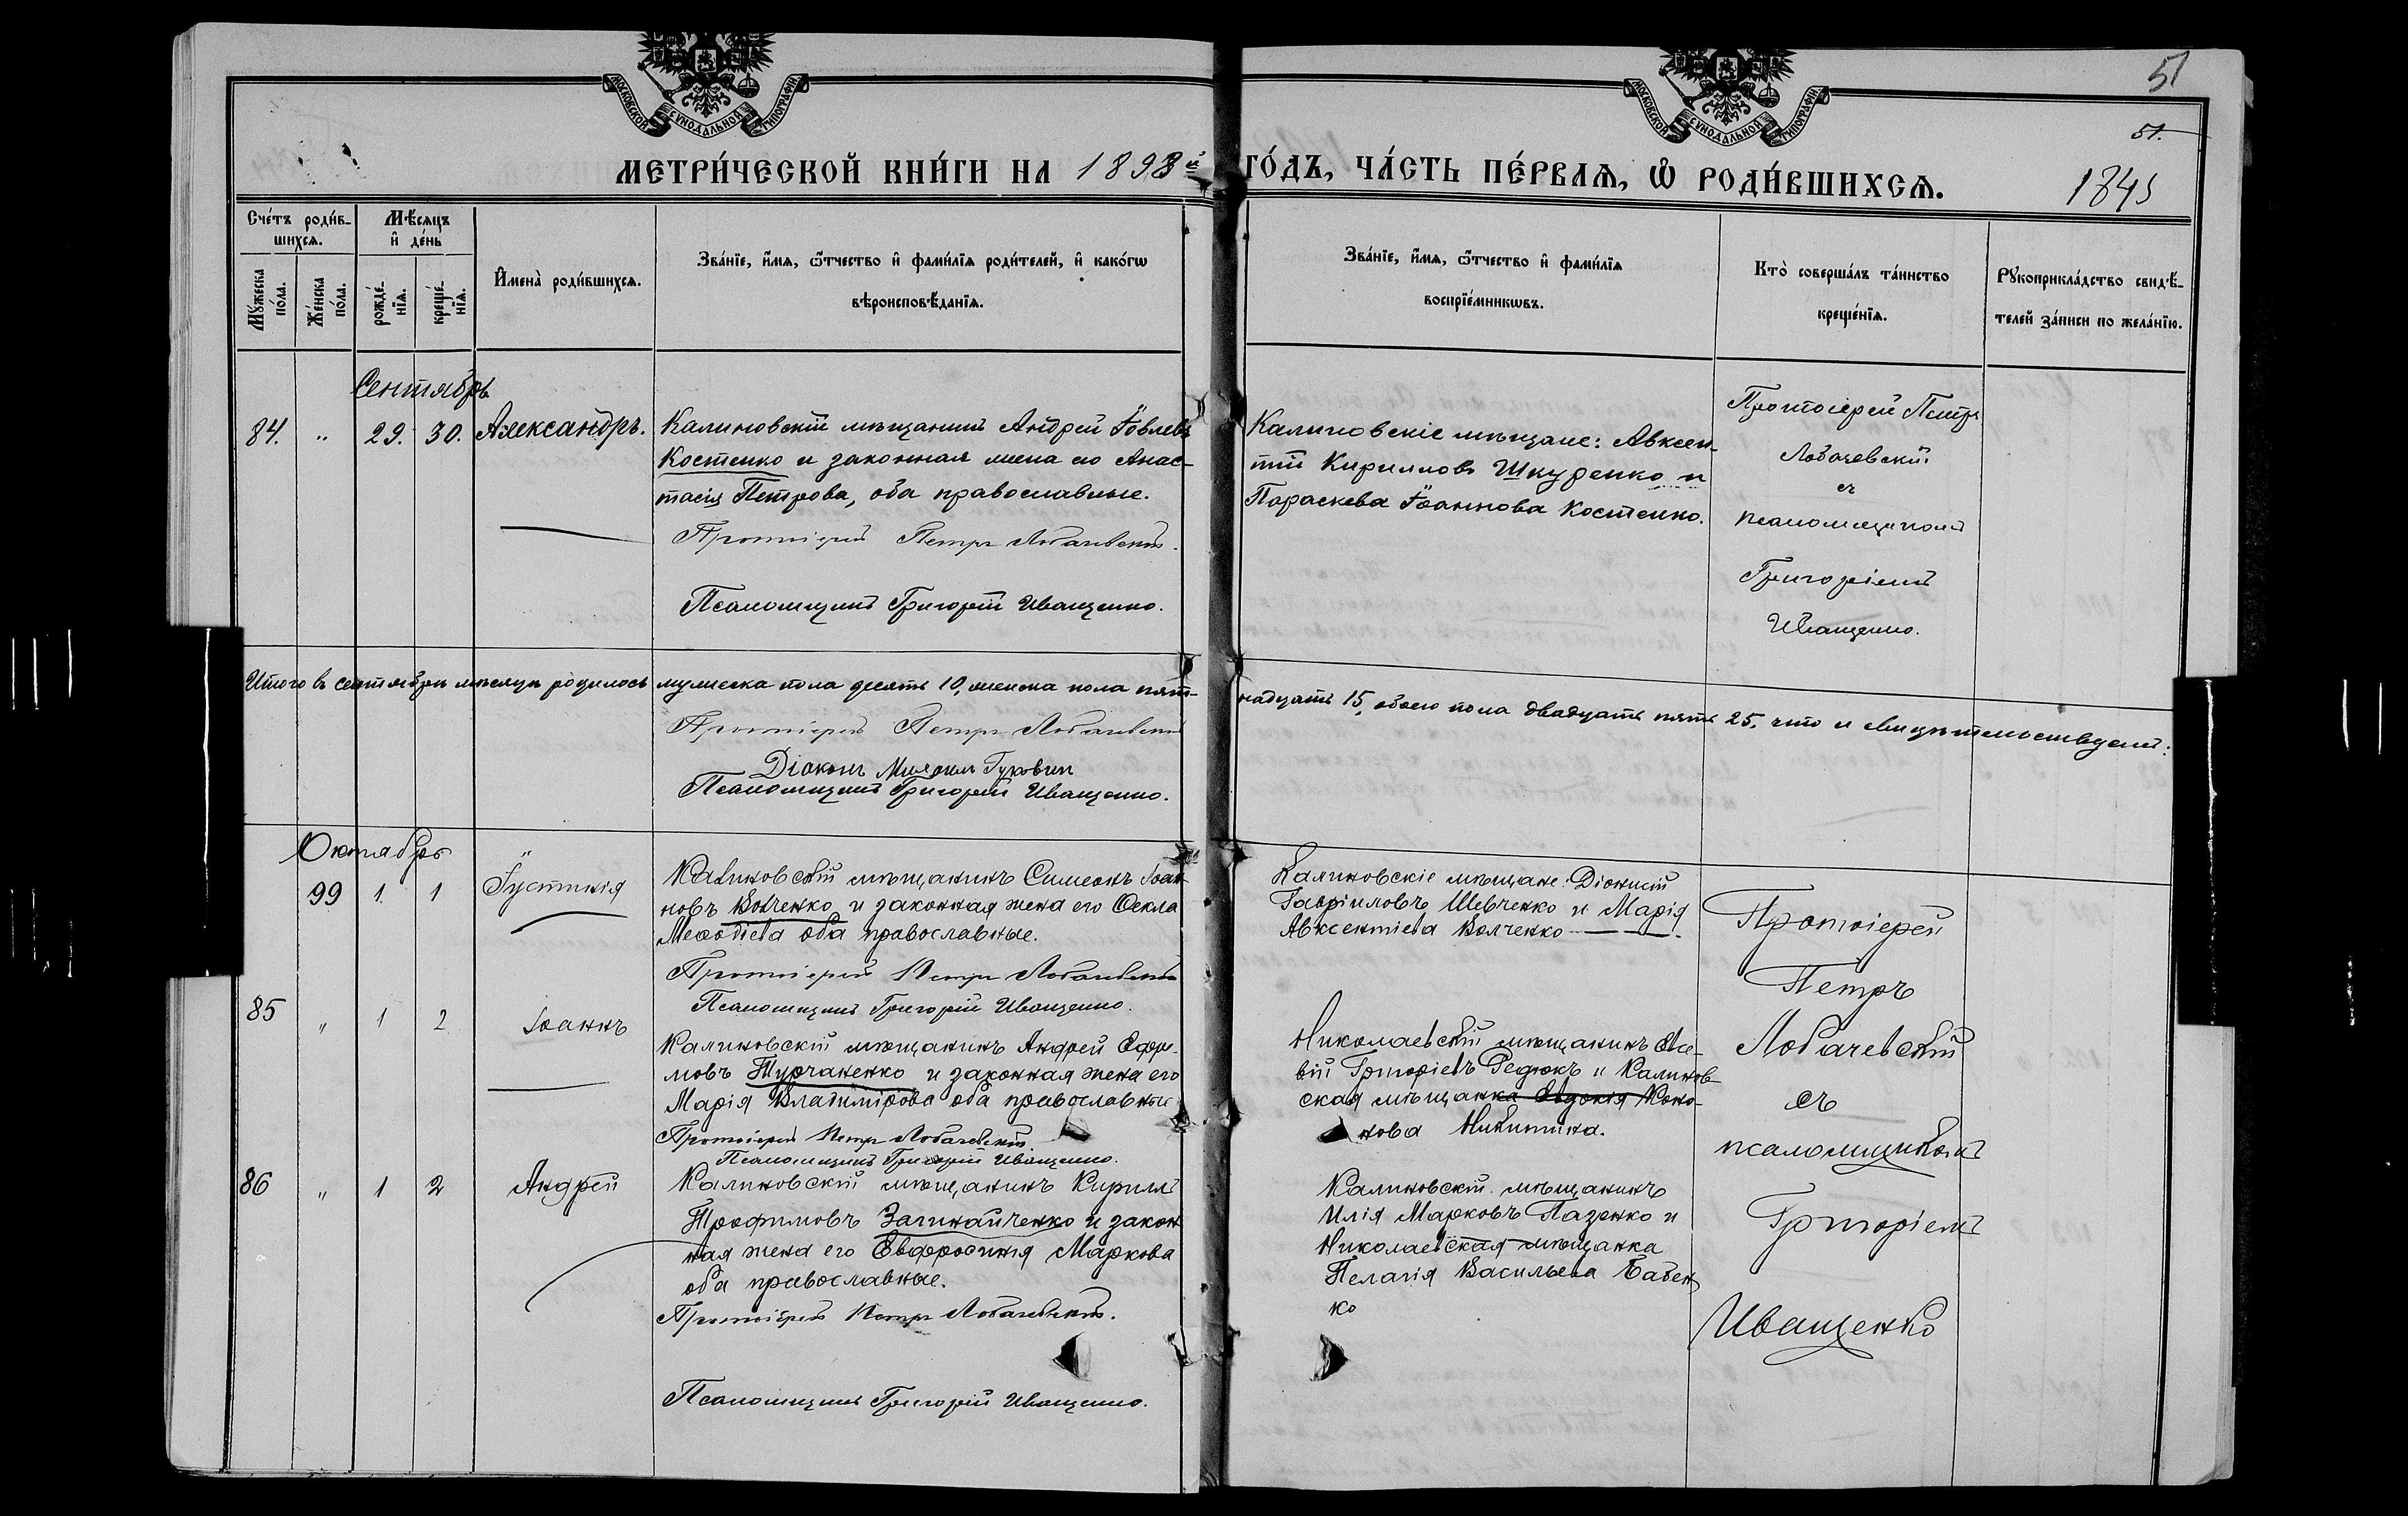 51
51.
1845
МОСКОВСКОЙ СѴНОДАЛЬНОЙ ТИПОГРАФІИ
МОСКОВСКОЙ СѴНОДАЛЬНОЙ ТИПОГРАФІИ
МЕТРИ́ЧЕСКОЙ КНИ́ГИ НА 1898й ГО́ДЪ, ЧА́СТЬ ПЕ́РВАѦ, Ѡ҆ РОДИ́ВШИХСѦ.
Сче́тъ роди́в-
шихсѧ.
Мꙋ́жеска
по́ла.
Же́нска
по́ла.
Мѣ́сѧцъ
и҆ де́нь
рожде́-
нїѧ.
креще́-
нїѧ.
И҆мена̀ роди́вшихсѧ.
Зва́нїе, и҆́мѧ, ѻ҆́тчество и҆ фами́лїѧ роди́телей, и҆ како́гѡ
вѣроисповѣ́данїѧ.
Зва́нїе, и҆́мѧ, ѻ҆́тчество и҆ фами́лїѧ
воспрїе́мникѡвъ.
Кто̀ соверша́лъ та́инство
креще́нїѧ.
Рꙋкоприкла́дство свидѣ́-
телей за́писи по жела́нїю.
Сентябрь
84. " 29. 30. Александръ.
Калиновскій мѣщанинъ Андрей Іовлевъ
Костенко и законная жена его Анас-
тасія Петрова, оба православные.
Протоіерей Петръ Лобачевскій.
Псаломщикъ Григорій Иващенко.
Калиновскіе мѣщане: Авксен-
тій Кирилловъ Шкуренко и
Параскева Іоаннова Костенко.
Протоіерей Петръ
Лобачевскій
съ
псаломщикомъ
Григоріемъ
Иващенко.
Итого въ сентябрѣ мѣсяцѣ родилось мужеска пола десять 10, женска пола пят-
надцать 15, обоего пола двадцать пять 25, что и свидѣтельствуемъ:
Протоіерей Петръ Лобачевскій
Діаконъ Михаилъ
Псаломщикъ Григорій Иващенко.
Октябрь
99 1. 1 Іустинія
Калиновскій мѣщанинъ Симеонъ Іоан-
новъ Волченко и законная жена его Ѳекла
Меѳодіева оба православные.
Протоіерей Петръ Лобачевскій
Псаломщикъ Григорій Иващенко.
Калиновскіе мѣщане: Діонисій
Гавріиловъ Шевченко и Марія
Авксентіева Волченко
85 " 1 2 Іоаннъ
Калиновскій мѣщанинъ Андрей Ефре-
мовъ Турчаненко и законная жена его
Марія Владимірова оба православные
Протоіерей Петръ Лобачевскій
Псаломщикъ Григорій Иващенко.
Николаевскій мѣщанинъ
вій Григоріевъ Редюкъ и Калинов-
ская мѣщанка Евдокія Коно-
нова Никитина.
86 " 1 2 Андрей
Калиновскій мѣщанинъ Кириллъ
Трофимовъ Загинайченко и закон
ная жена его Евфросинія Маркова
оба православные.
Протоіерей Петръ Лобачевскій.
Псаломщикъ Григорій Иващенко.
Калиновскій мѣщанинъ
Илія Марковъ Пазенко и
Николаевская мѣщанка
Пелагія Васильева Бабен
ко
Протоіерей
Петръ
Лобачевскій
съ
псаломщикомъ
Григоріемъ
Иващенко